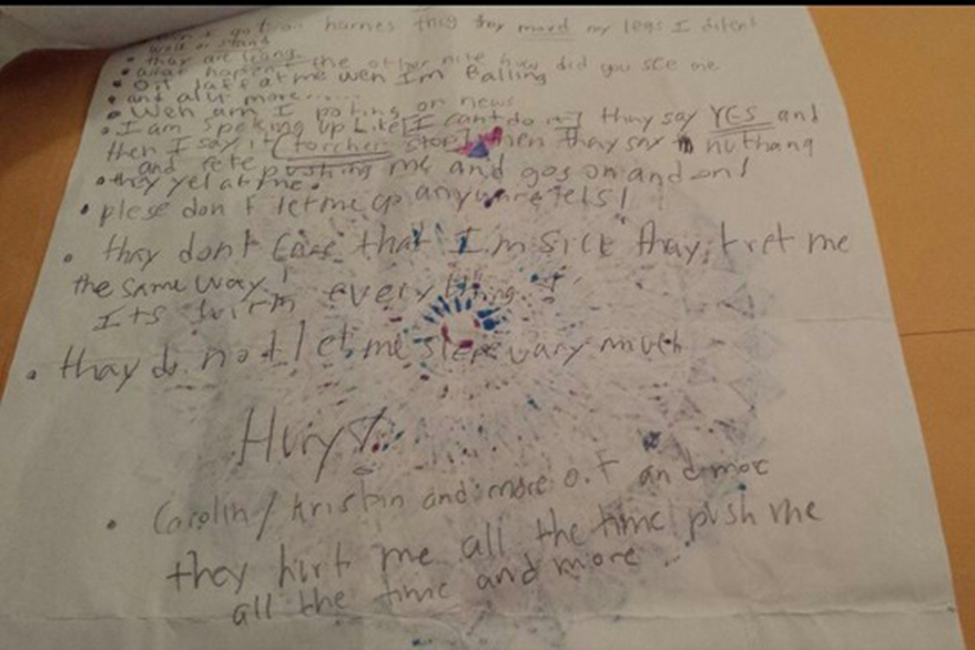 go harnes they moved my legs I dident
walk or stand
• they are
• the other nite how did you see me
• O.T. laff at me wen Im Balling
• and alit more......
• Weh am I poting on news
• I am speking up Like [I cant do it] thay say YES and
then I say it (torcher stop) then thay say nuthang
and pushing me and gos on and on!
• they yel at me.
• plese don't let me go anymore
• thay dont care that I'm sick thay tret me
the same way!
Its with everything!
• thay do not let me sleep vary much
Hurys!
• Carolin/kristin and more O.T and more
they hurt me all the time push me
all the time and more...